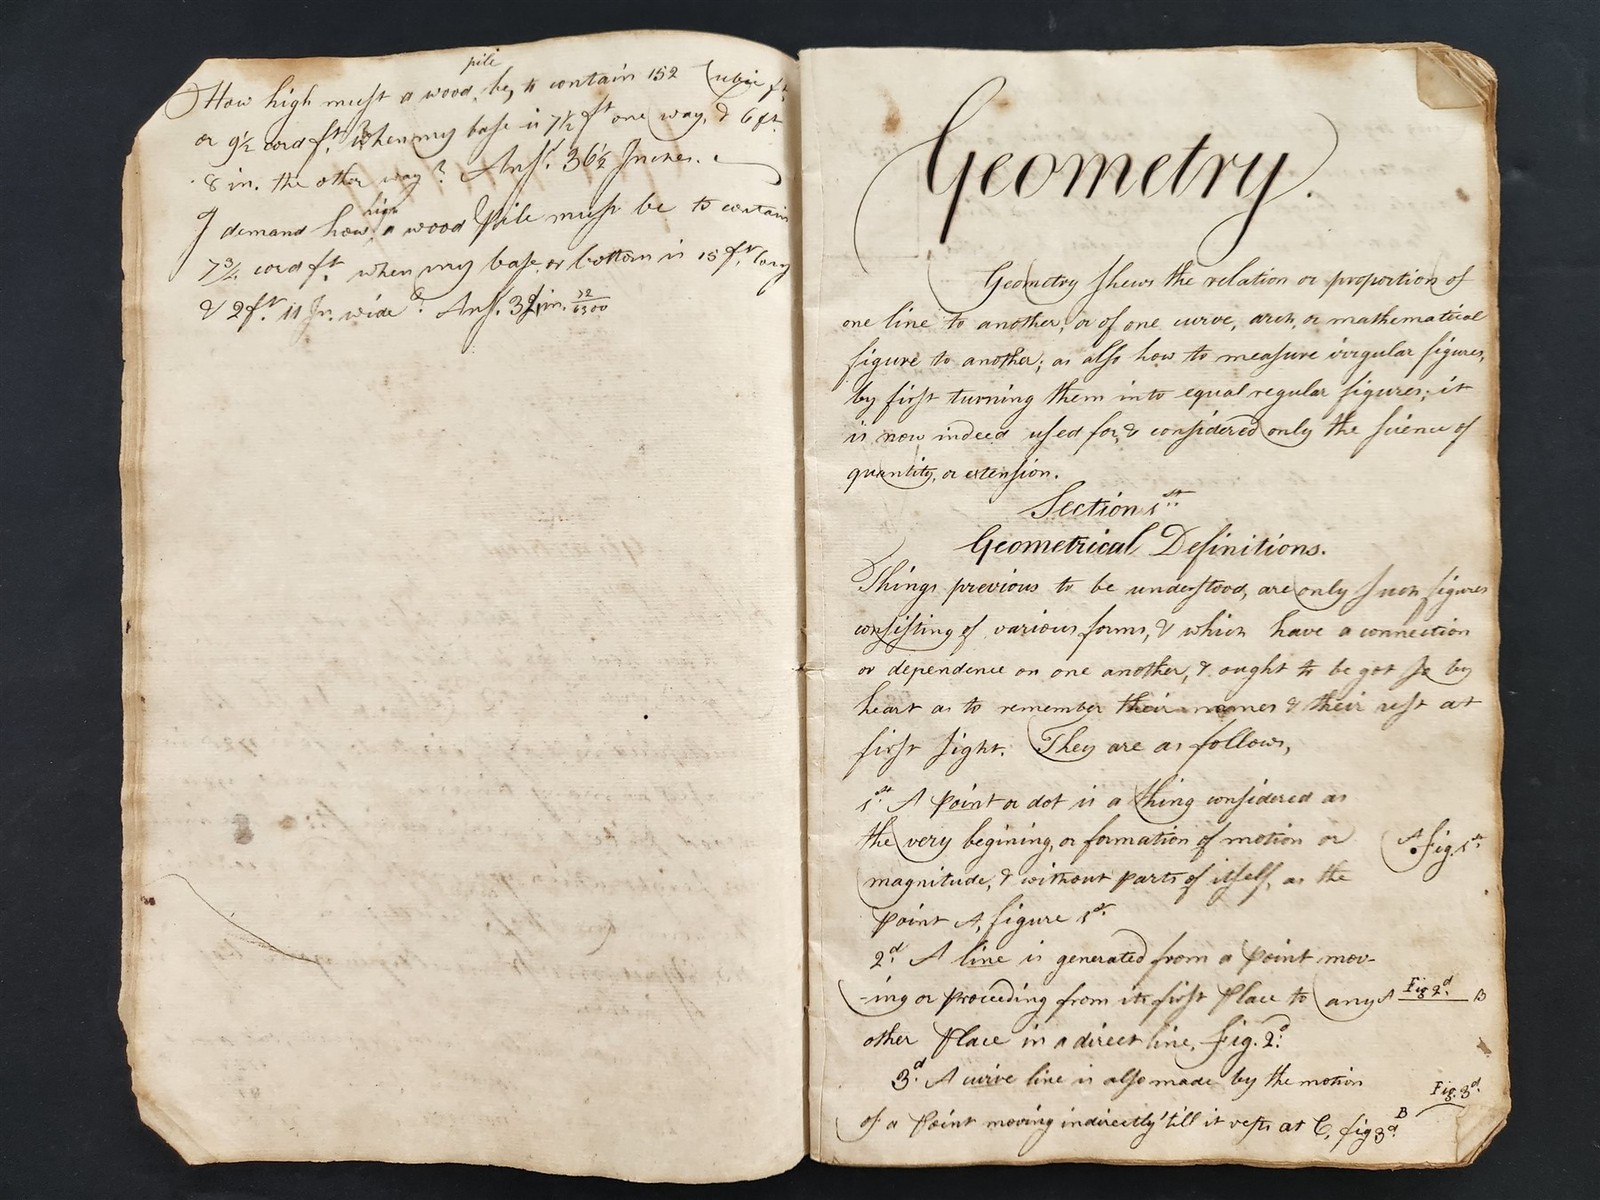 pile
How high must a wood be, to contain 152 Cubic ft.
or 9½ cord ft. when my base is 7½ ft one way, & 6 ft.
8 in. the other way? Ansr. 36½ Inches.
high
I demand how a wood Pile must be to contain
7¾ cord ft. when my base or bottom is 15 ft. long
& 2 ft. 11 In. wide? Ans. in.
Geometry.
Geometry shews the relation or proportion of
one line to another, or of one curve, arch, or mathematical
figure to another; as also how to measure irregular figures,
by first turning them into equal regular figures; it
is now indeed used for, & considered only the science of
quantity, or extension.
Section 1st.
Geometrical Definitions.
Things previous to be understood, are only such figures
consisting of various forms, & which have a connection
or dependence on one another, & ought to be got so by
heart as to remember their names & their use at
first sight. They are as follows,
1st. A Point or dot is a thing considered as
the very begining, or formation of motion or
magnitude, & without parts of itself, as the
Point A, figure 1st.
A
. fig. 1st.
2d. A line is generated from a Point mov-
-ing or proceeding from its first Place to any
A Fig 2d. B
other Place in a direct line, Fig. 2d.
3d. A curve line is also made by the motion
Fig. 3d.
of a Point moving indirectly 'till it rests at C, fig 3d.
B